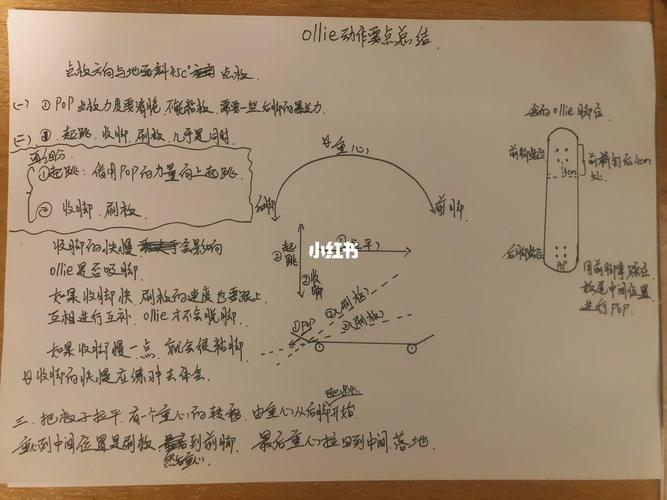 ollie动作要点总结.
点板方向与地面斜45° 点板.
(一) ① POP 点板力度要清脆, 不能粘板, 需要一些后脚的
(二) 起跳, 收脚, 刷板, 几乎是同时.
再细分
①起跳: 借用POP的力量向上起跳.
② 收脚, 刷板
收脚的快慢 会影响
ollie是否吸脚.
如果收脚快, 刷板的速度也要跟上
互相进行互补, ollie才不会脱脚.
如果收脚慢一点, 就会很粘脚.
收脚的快慢应练习中去体会.
三. 把板子拉平, 有一个重心的转移, 由重心从后脚开始
起跳
重心到中间位置是刷板, 到前脚, 最后重心拉回到中间, 落地.
然后重心
重心
后脚
前脚
起跳
②收脚
拉平
②(刷板)
②(刷板)
①POP
小红书
我的Ollie脚位
前脚
前桥钉后4cm
处.
4cm
后脚
用前脚掌踩在
板尾中间位置
进行POP.